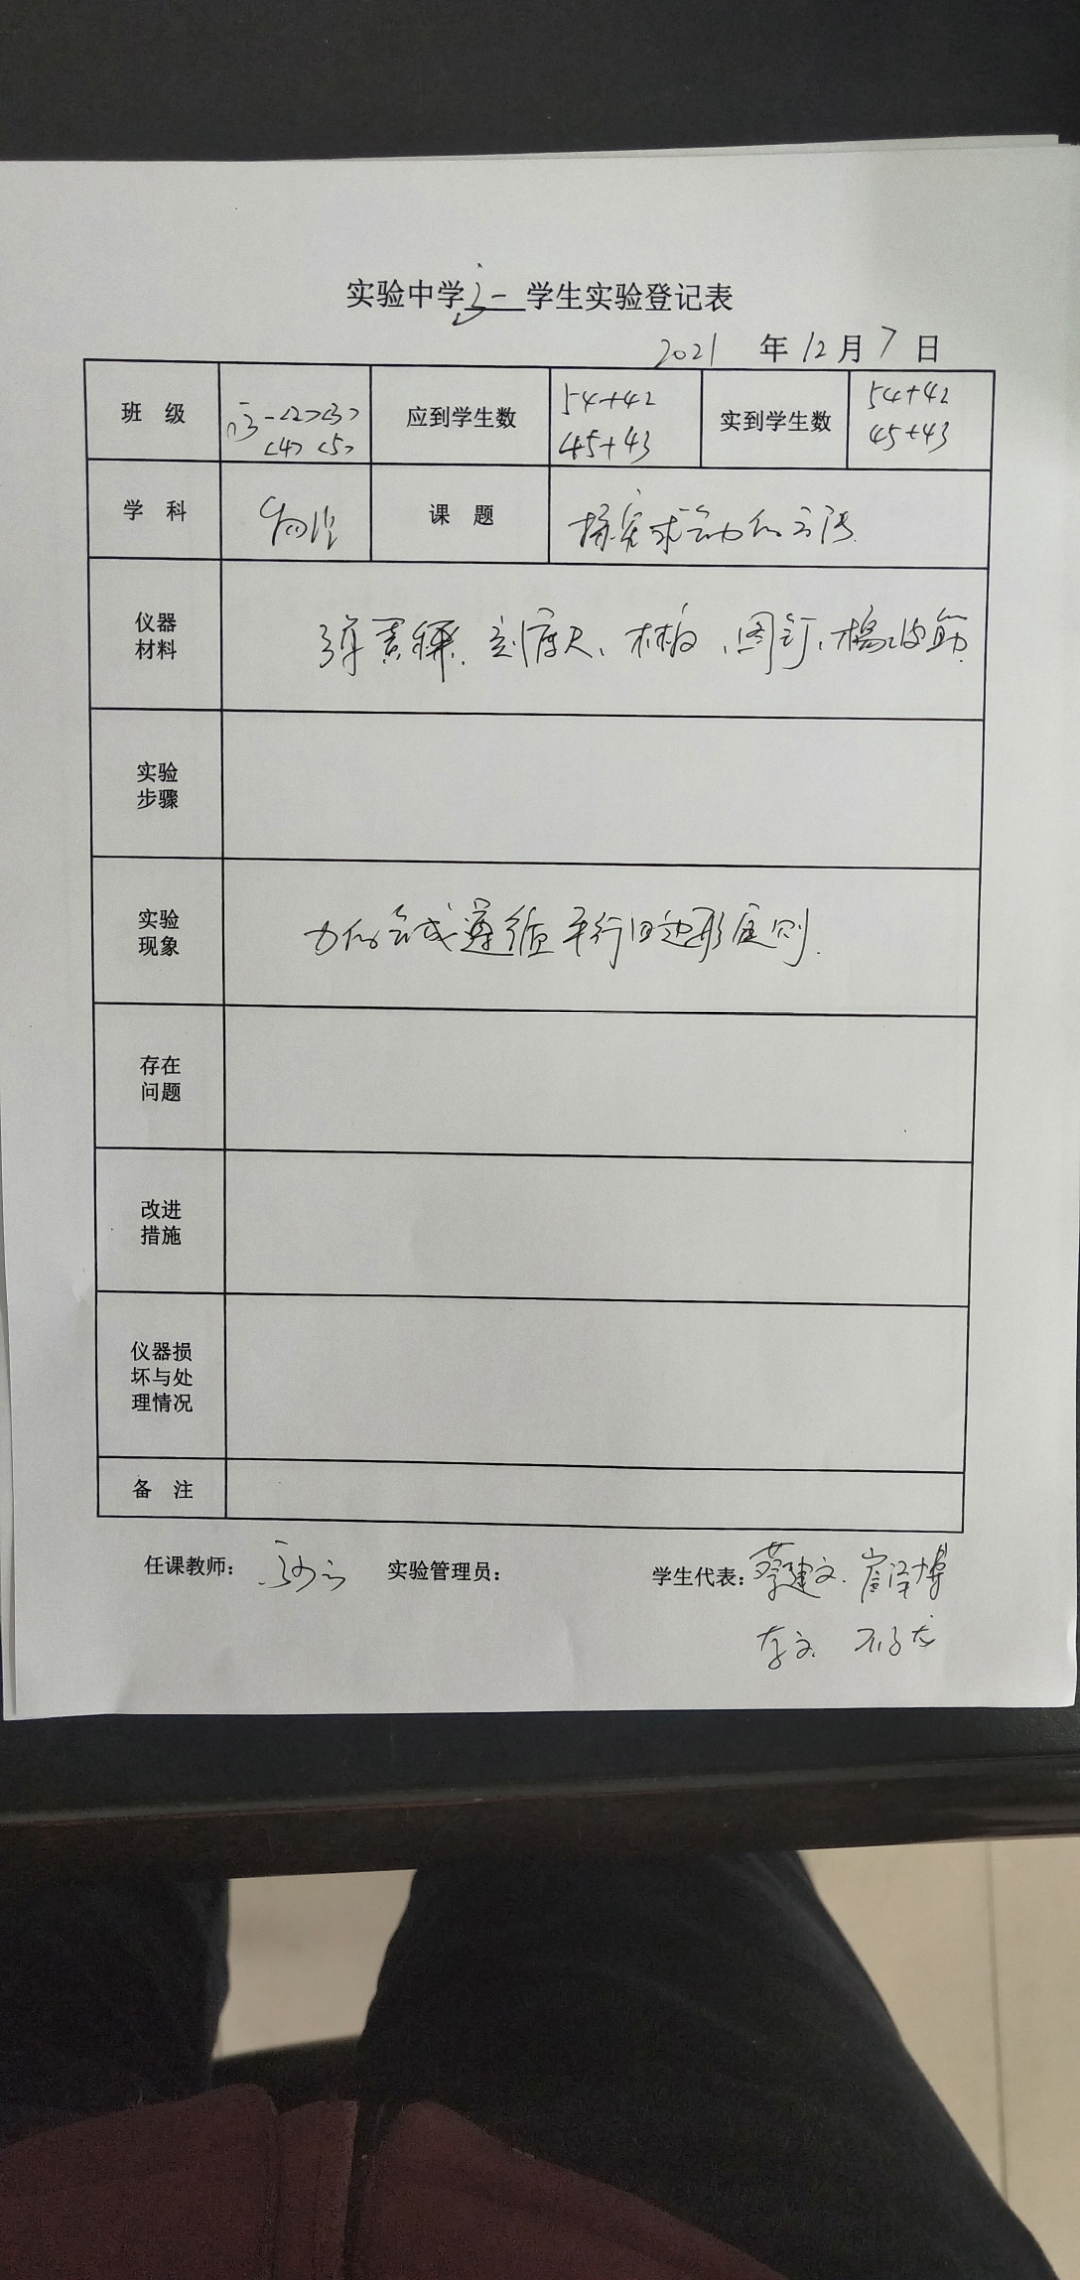 实验中学高一学生实验登记表
2021 年 12 月 7 日
班 级 高一<2><3> 应到学生数 54+42 实到学生数 54+42
<4> <5> 45+43 45+43
学 科 物理 课 题 探究求合力的方法
仪器
材料
弹簧秤、刻度尺、木板、图钉、橡皮筋
实验
步骤
实验
现象
力的合成遵循平行四边形定则.
存在
问题
改进
措施
仪器损
坏与处
理情况
备 注
任课教师： 实验管理员： 学生代表：蔡建文. 崔泽博
李文.